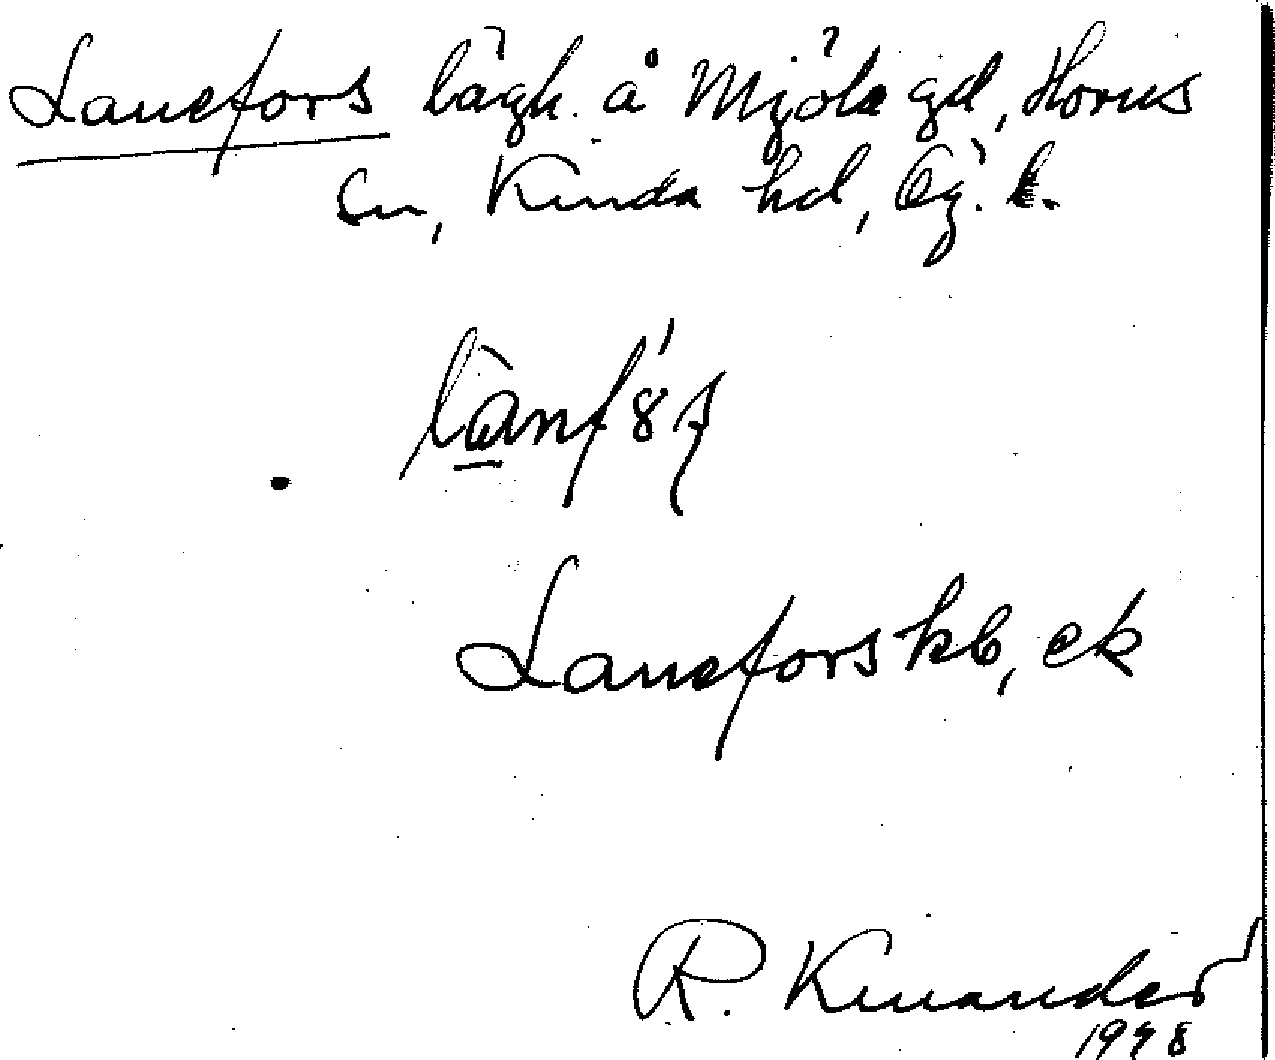 Lanefors lägh. å Mjöla gd, Horns
sn, Kinda hd, Ög. l.
Lanefors kb, ek
R. Kinander
1948